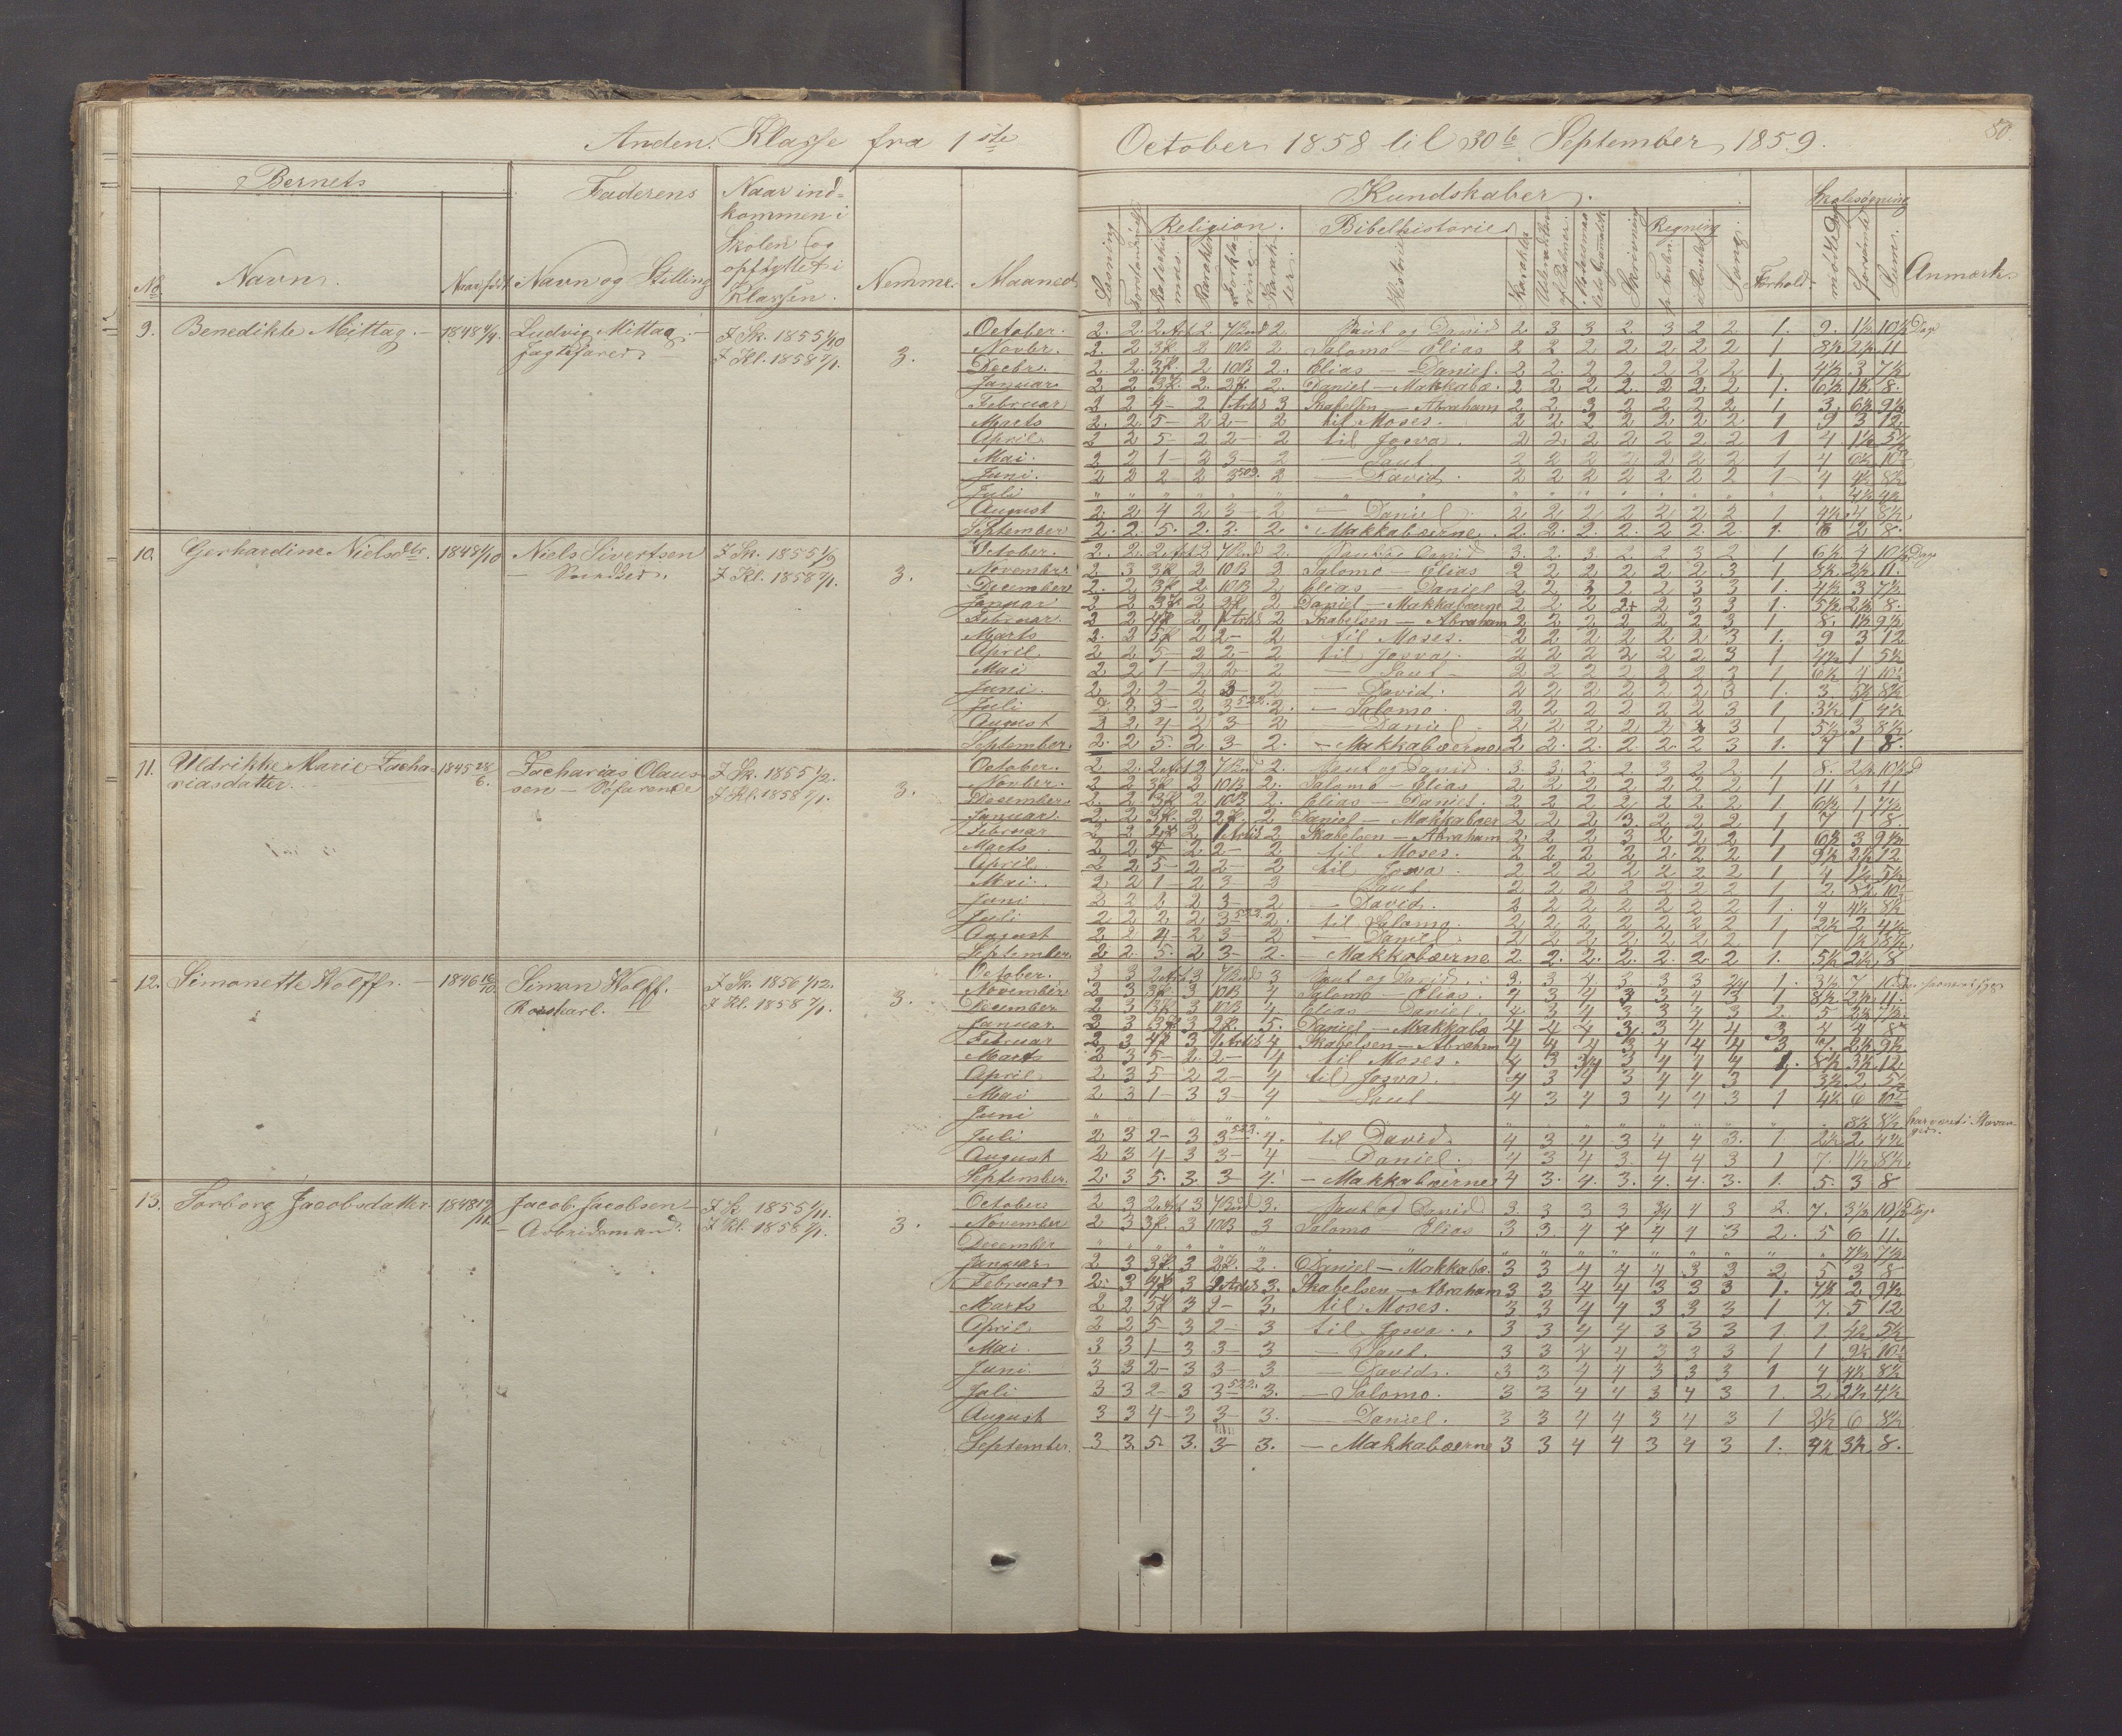 50.
Anden Klasse fra 1ste October 1858 til 30te September 1859.
Bernets
Faderens
Naar ind-
kommen i
Skolen (og
opflyttet i
Klassen.
No
Navn.
Naar født
Navn og Stilling
Nemme.
Maaned.
Kundskaber.
Religion.
Bibelhistorie
Regning
Sang.
Skrivning
Forhold.
Skolesøgning
Anmærk.
9. Benedikte Mittag. – 1848
Ludvig Mittag. –
Jagtefarer
I Sk. 1855 1/10
I Kl. 1858 7/1.
3.
October. 2. 2. 2 Art 2. 2. Saul og David 2. 3 3 2. 3 2 2. 1. 9. 1½ 10½ Dage
Novbr. 2. 2 2 10B 2 Salomo – Elias 2 2 2 2 2 2 2 1 8½ 2½ 11
Decbr. 2. 2. 2 10B 2. Elias – Daniel. 2 2. 2 2 2 2 2 1. 4½ 3 7½
Januar. 2 2 2. 2. Daniel – Makkabæ. 2 2 2 2. 2 2 2 1. 6½ 1½ 8.
Februar 2 2 4 – 2 1 Artik 3 Skabelsen – Abraham 2 2 3 2 2 2 2 1 3 6½ 9½
Marts 2. 2 5 – 2 2 – 2 til Moses. 2 2 2 2 2 2 2 1 9 3 12
April 2 2 5 – 2 2 – 2 til Josva. 2 2 2 2 2 2 2 1 4 1½ 5½
Mai. 2 2 1 – 2 3 – 2 – Saul 2 2 2 2 2 2 2 1 4 6½ 10½
Juni. 2 2 2 – 2 3 2 – David. 2 2 2 2 2 2 2 1 4 4½ 8½
Juli " " " " " " " " " " " " " " " " 4½ 4½
August 2 2 4 2 3 – 2 – Daniel 2 2 2 2 2 2 2 1 4½ 4 8½
September 2. 2 5. 2. 3. 2. – Makkabæerne. 2. 2. 2. 2. 2. 2. 2. 1. 6 2 8.
10. Gerhardine Nielsdtr. 1848 1/10
Niels Sivertsen
I Sk. 1855 1/9
I Kl. 1858 7/1.
3.
October. 2. 2. 2 Art 3 2. Saul og David 3. 2. 3. 2. 2 3 2 1 6½ 4 10½ Dage
November 2 3 2 10B 2 Salomo – Elias 2 2 2 2 2 2 3 1 8½ 2½ 11.
December 2. 2 2 10B 2 Elias – Daniel 2 2 3 2 2 3 3 1. 4½ 3 7½
Januar 2 2 2 2 Daniel – Makkabæerne 2 2 2 2 2 3 3 1. 5½ 2½ 8.
Februar. 2 2 2 1 Artik 2 Skabelsen – Abraham 2 2 2 2 2 2 3 1 8. 1½ 9½
Marts 2. 2 2 2 – 2 til Moses. 2 2 2 2 2 2 3 1. 9 3 12
April. 2 2 5 – 2 2 – 2 til Josva 2 2 2 2 2 2 3 1 4½ 1 5½
Mai 2 2 1 – 2 2 2 – Saul – 2 2 2 2 2 2 3 1 6½ 4 10½
Juni. 2 2 2 – 2 3 – 2 – David. 2 2 2 2 2 2 3 1. 3. 5½ 8½
Juli 2 2 3 – 2 3 2. – Salomo. 2 2 2 2 2 2 3 1 3½ 1 4½
August 2 2 4 – 2 3 – 2 – Daniel 2 2 2 2 2 3 3 1 5½ 3 8½
September. 2. 2 5. 2. 3 – 2. – Makkabæerne 2 2. 2. 2. 2. 2 3 1. 7 1 8.
11. Uldrikke Marie Zacha-
riasdatter. 1845 28/6.
Zacharias Olaus-
sen – Søfarende
I Sk. 1855 1/2.
I Kl. 1858 7/1.
3.
October. 2 2. 2 Art 2 2. Saul og David. 3. 3. 2. 2. 3 2 2. 1 8. 2½ 10½
Novbr. 2 2 2 10B 2. Salomo – Elias 2 2 2 2 2 2 2 1 11 " 11
December 2. 2 2 10B 2. Elias – Daniel. 2 2 2 2. 2 2 2 1. 6½ 1 7½
Januar. 2. 2 2 2 Daniel – Makkabæer 2 2 2 3. 2 2 2 1 7 1 8.
Februar 2 2 2 1 Artik 2 Skabelsen – Abraham 2. 2 2 3 2 2 2 1 6½ 3 9½
Marts 2 2 2 2 – 2 til Moses. 2 2 2 2 2 2 2 1 9½ 2½ 12
April 2 2 5 – 2 2 – 2 til Josva. 2 2 2 2 2 2 2 1 4 1½ 5½
Mai. 2 2 1 – 2 3 – 3 – Saul 2 2 2 2 2 2 2 1 2 8½ 10½
Juni 2 2 2 2 3 – 2 – David. 2 2 2 2 2 2 2 1. 4 4½ 8½
Juli 2 2 2 2 3 2. til Salomo. 2 2 2 2 2 2 2 1 2½ 2 4½
August 2 2 4 – 2 3 – 2 – Daniel. 2 2 2 2 2 2 2 1 7. 1½ 8½
September 2 2. 5. 2 3 – 2. – Makkabæerne 2. 2. 2. 2. 2. 2. 2 1. 5½ 2½ 8
12. Simonette Wolff. – 1846 16/10.
Simon Wolff.
I Sk. 1856 1/12.
I Kl. 1858 7/1.
3.
October. 3 3 2 Art 3 3 Saul og David. 3. 3 4 3 3 3 1. 3½ 7 10½
November 2 3 3 10B 4 Salomo – Elias. 4 3 4 3 3 4 3 1 8½ 2½ 11.
December 2 3 3 10B 4 Elias – Daniel. 4. 3 4 3 3 4 3 2. 5 2½ 7½
Januar. 2 3 3 5. Daniel – Makkabæ 4 4 4 3 3 4 4 3 4 4 8
Februar 2 3 3 1 Artik 4 Skabelsen – Abraham 4 4 4 3 4 4 4 3 7. 2½ 9½
Marts 2 3 5 – 2 2 – 4 til Moses. 4 3 3 4 4 4 1. 8½ 3½ 12
April 2 3 5 – 2 2 – 4 til Josva. 4 3 4 3 4 4 3 1 3½ 2 5½
Mai 2 3 1 – 3 3 – 4 – Saul 4 3 4 3 4 4 3 1 4½ 6 10½
Juni " " " " " " " " " " " " " " " " 8½ 8½ har været i Stavan-
ger.
Juli 2 3 2 – 3 3 4. til David. 4 3 4 3 4 4 3. 1. 2½ 2 4½
August 2 3 4 – 3 3 – 4 – Daniel. 4 3 4 3. 4 4 3 1 7. 1½ 8½
September. 2. 3 5. 3. 3 4. – Makkabæerne 4 3. 4. 3. 4. 4. 3. 1. 5. 3 8
13. Torborg Jacobsdatter. 1848
Jacob Jacobsen
– Arbeidsmand.
I Sk. 1855 1/11.
I Kl. 1858 7/1.
3.
October 2 3 2 Art 3 3. Saul og David 3. 3 3 3 4 3 2. 7. 3½ 10½ Dage
November 2 3 3 10B 3 Salomo – Elias 3 3. 4 4 4 4 3 2. 5 6 11.
December " " " " " " " " " " " " " " " " 7½ 7½
Januar 2 3 3 2. Daniel – Makkabæ. 3 3 4 4 4 3 3 2 5 3 8
Februar 2. 3 3 1 Artik 3. Skabelsen – Abraham 3 3 4 4 3 3 3 1. 7½ 2 9½
Marts 2 2 3 2 – 3. til Moses. 3 3 4 4 3 3 3 1 7. 5 12
April 2 2 5 – 3 2 – 3 til Josva. 3 3 4 4 3 3 3 1. 1 4½ 5½
Mai. 3 3 1 – 3 3 – 3 – Saul. 3 3 4 4 3 3 3 1 1 9½ 10½
Juni 3 3 2 – 3 3 – 3 – David. 3 3 4 4 3 3 3 1 4 4½ 8½
Juli 3 3 2 – 3 3 3. – Salomo. 3 3 4 4 3 4 3 1. 2 2½ 4½
August 3 3 4 – 3 3 – 3. – Daniel. 3 3 4 4 3 4 3 1 2½ 6 8½
September 3 3. 5 3. 3 – 3. – Makkabæerne 3 3 4 4 3 4 3 1. 4½ 3½ 8.